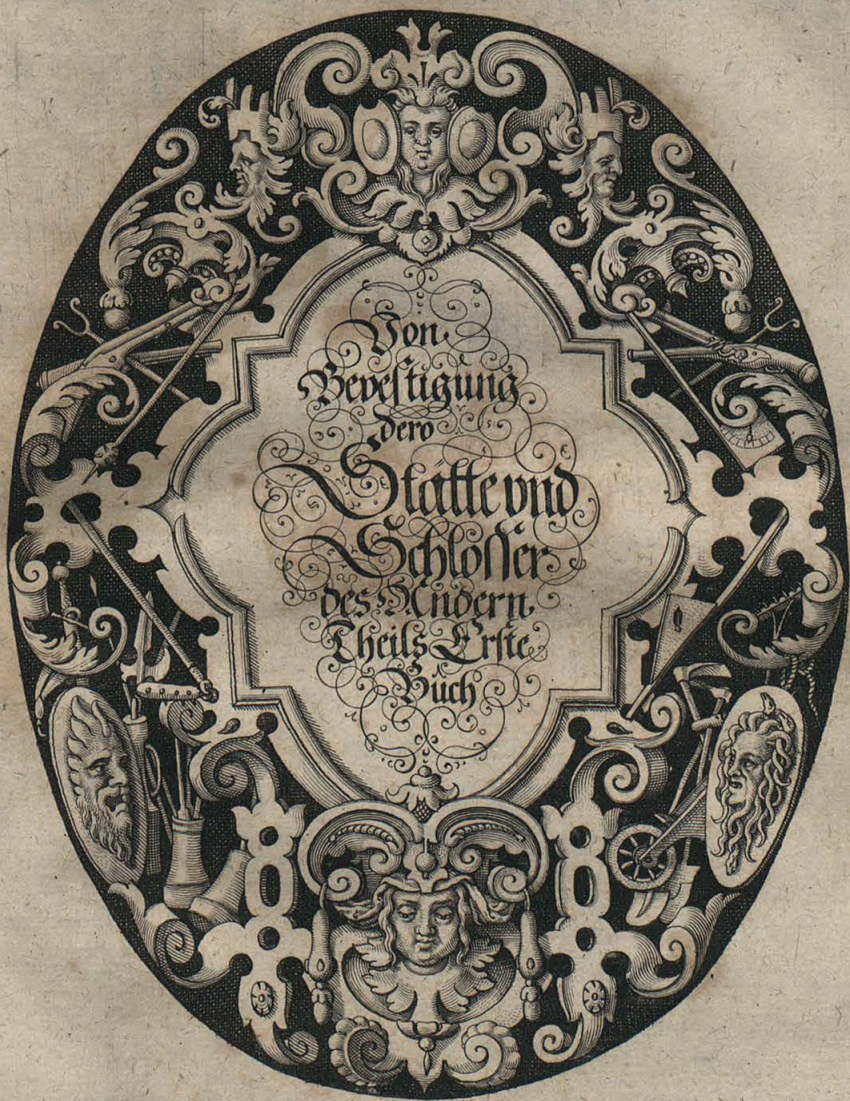 Von
Bevestigung
dero
Stätte vnd
Schlösser
des Andern
Theils Erste
Bůch